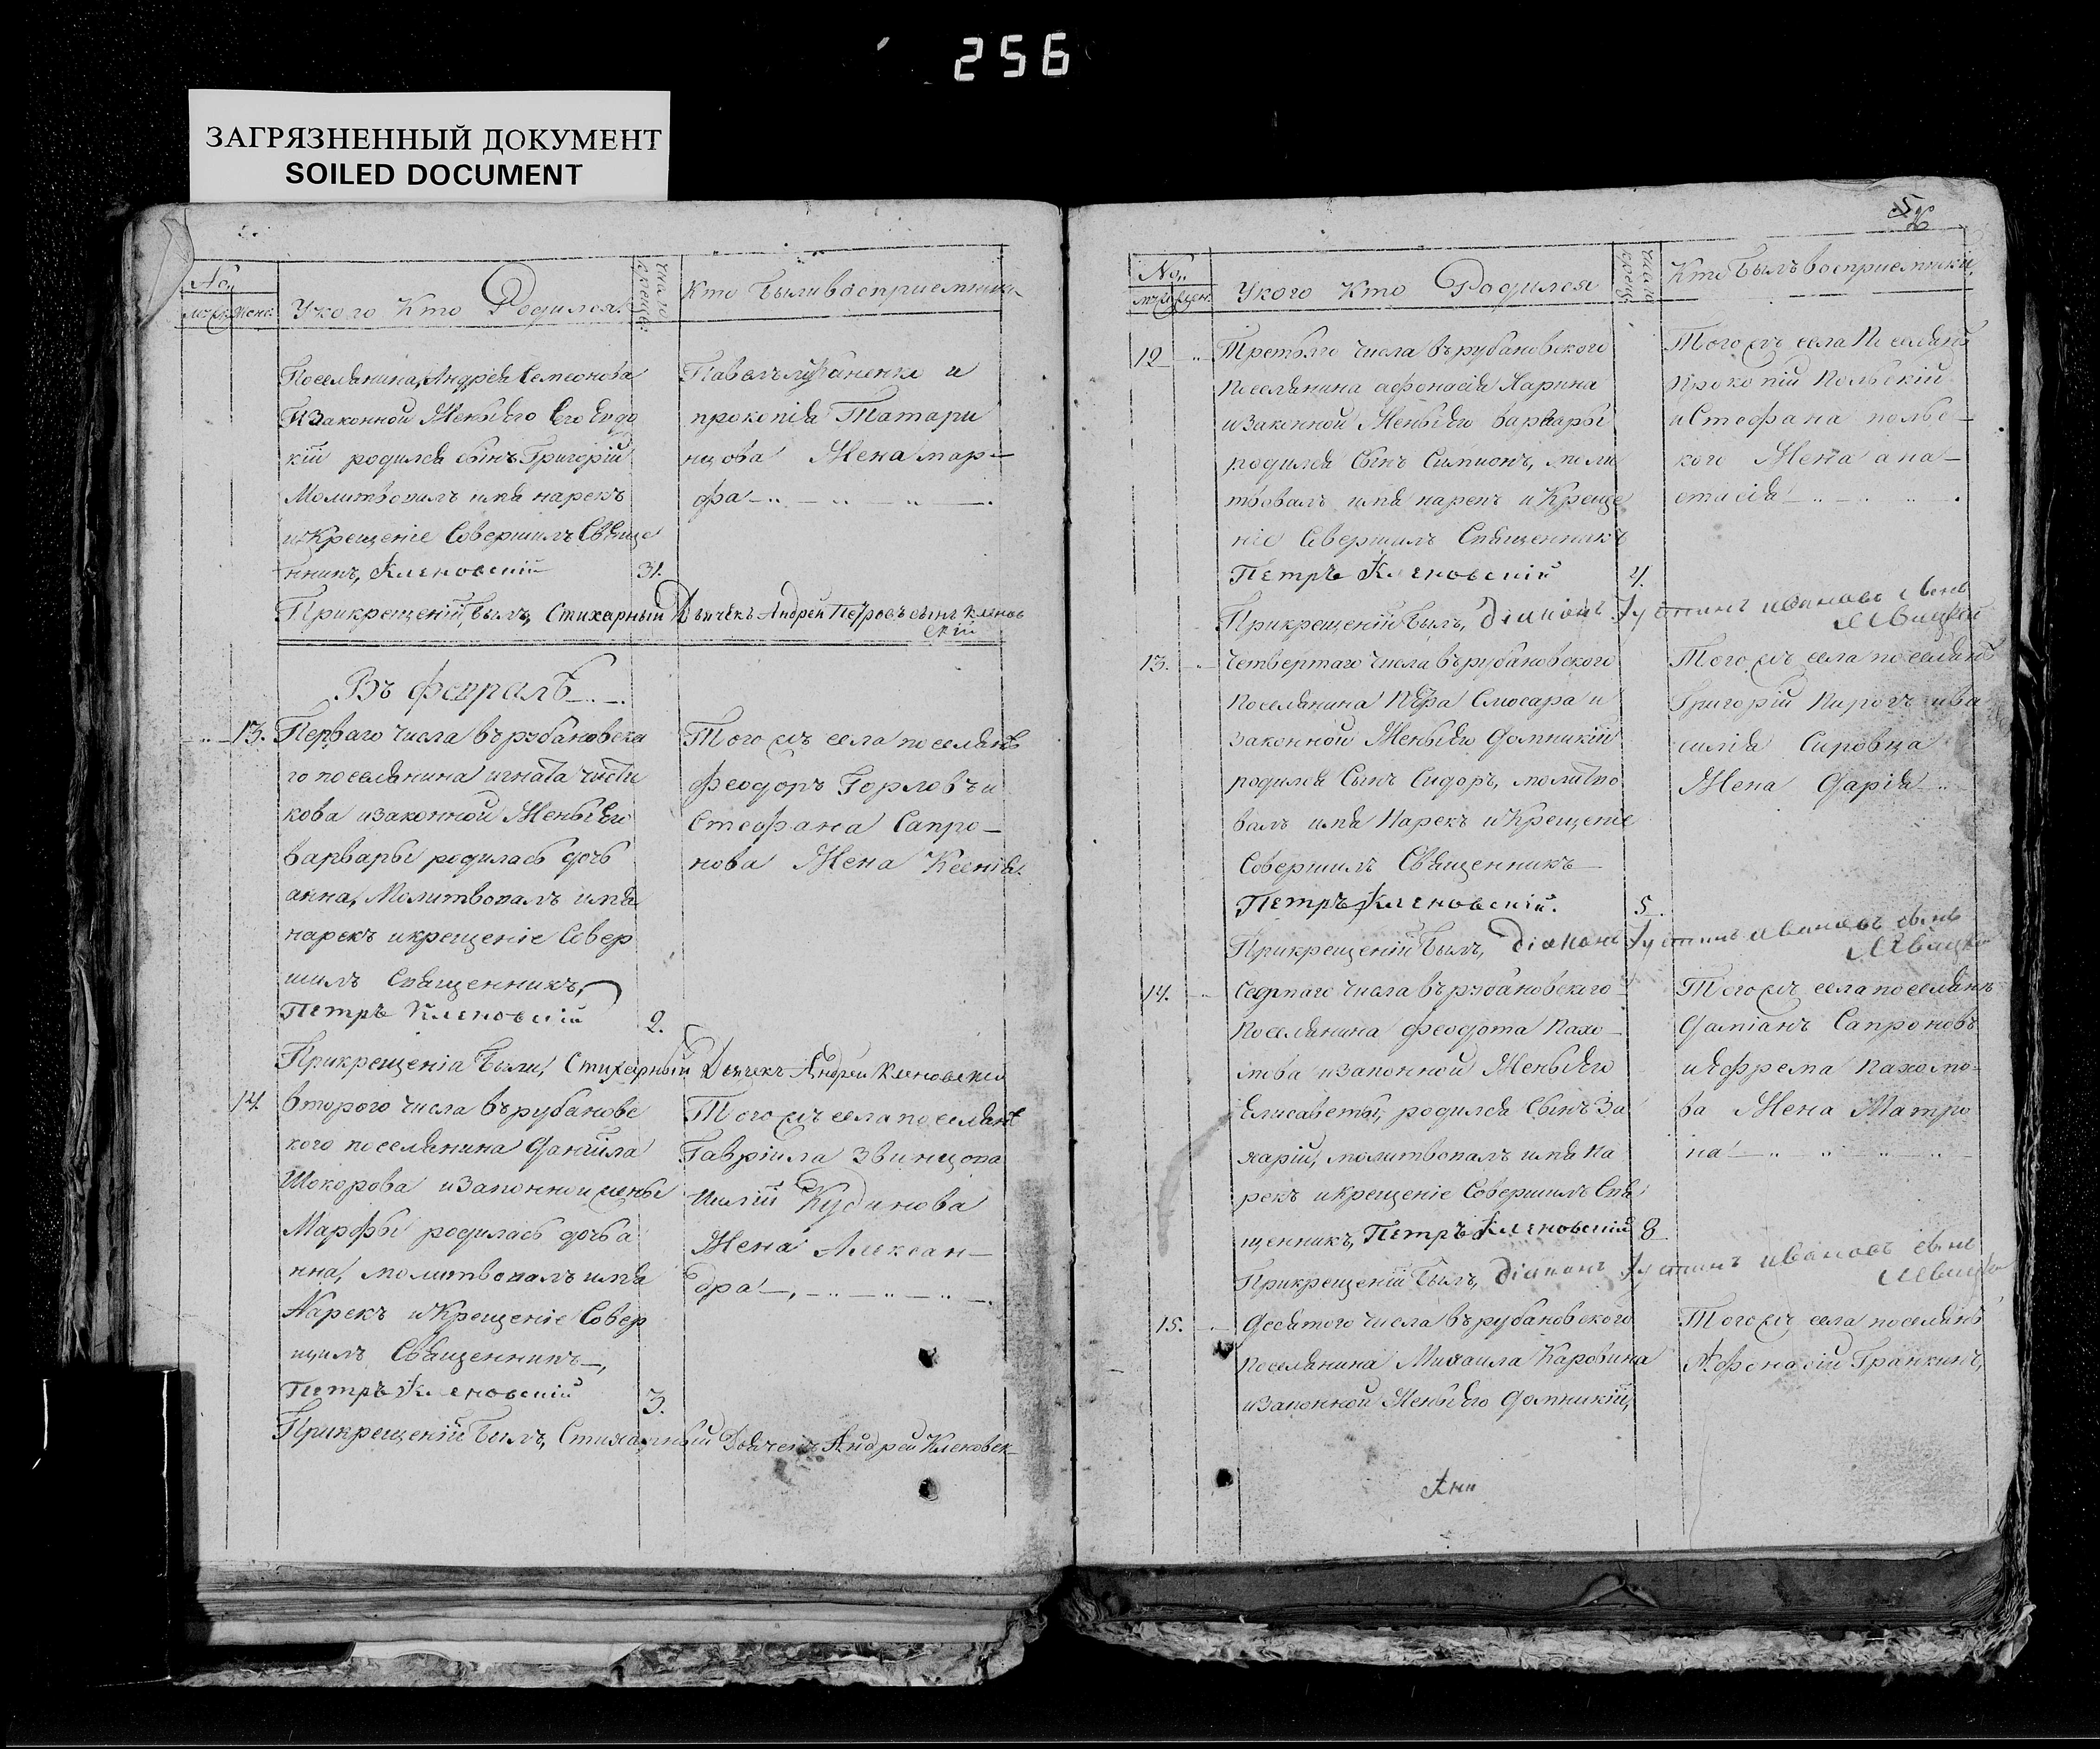 256
ЗАГРЯЗНЕННЫЙ ДОКУМЕНТ
SOILED DOCUMENT
У кого Кто Родился.
Кто были восприемники
Поселянина, Андрея Семеонова
Изаконной Жены его Евдо
кіи родился сынъ Григорій
Молитвовалъ имя нарекъ
икрещеніе Совершилъ Свяще
нникъ, Кленовскій 31.
Прикрещеніи былъ, Стихарный Дьячекъ Андрей Петровъ сынъ Кленов
скій
и
прокопія Татари
нцова Жена мар-
фа
Въ февралѣ
13. Перваго числа въ рубановска
го поселянина игната чисти
кова изаконной Жены его
варвары родилась дочь
анна, Молитвовалъ имя
нарекъ икрещеніе Совер
шилъ Священникъ,
Петръ Кленовскій 2.
Того жъ села поселянъ
феодоръ Горловъ и
Стефана Сапро-
нова Жена Ксенія.
Прикрещеніи были, Стихарный Дьячекъ Андрей Кленовский
14. второго числа въ рубановс
кого поселянина Даніила
Шокорова изаконной жены
Марфы родилась дочь а
нна, молитвовалъ имя
Нарекъ и Крещеніе Совер
шилъ Священникъ,
Петръ Кленовскій 3.
Того жъ села поселянъ
Гавріила Звинцова
Кудинова
Жена Алексан-
дра
Прикрещеніи былъ, Стихарный Дьячекъ Андрей Кленовск
No.
У кого Кто Родился
Кто былъ восприемники,
12 Третьяго числа въ рубановского
поселянина афонасія Ларина
изаконной Жены его варвары
родился Сынъ Симионъ, моли
твовалъ имя нарекъ и Креще
ніе Совершилъ Священникъ
Петръ Кленовскій 4.
Того жъ села Поселянъ
Прокопій Польскій
и Стефана польс-
кого Жена ана-
стасія
Прикрещеніи былъ, Діаконъ Іустинъ ивановъ сынъ
13. Четвертаго числа въ рубановского
поселянина Слюсара и
законной Жены его Домникіи
родился Сынъ Сидоръ, молитво
валъ имя Нарекъ и Крещеніе
Совершилъ Священникъ
Петръ Кленовскій. 5.
Того жъ села поселянъ
Григорій Пирогъ ива
силія Сировца
Жена Дарія
Прикрещеніи былъ, Діаконъ Іустинъ ивановъ сынъ
14. Седмаго числа въ рубановского
поселянина феодота Пахо
мова изаконной Жены его
Елисаветы, родился Сынъ За
харій, молитвовалъ имя На
рекъ икрещеніе Совершилъ Свя
щенникъ, Петръ Кленовскій 8
Того жъ села поселянъ
Даміанъ Сапроновъ
иефрема Пахомо-
ва Жена Матро
на
Прикрещеніи былъ, Діаконъ Іустинъ ивановъ сынъ
15. Десятого числа въ рубановского
поселянина Михаила Каровина
изаконной Жены его Домникіи,
Того жъ села поселянъ
Афонасій Гранкинъ,